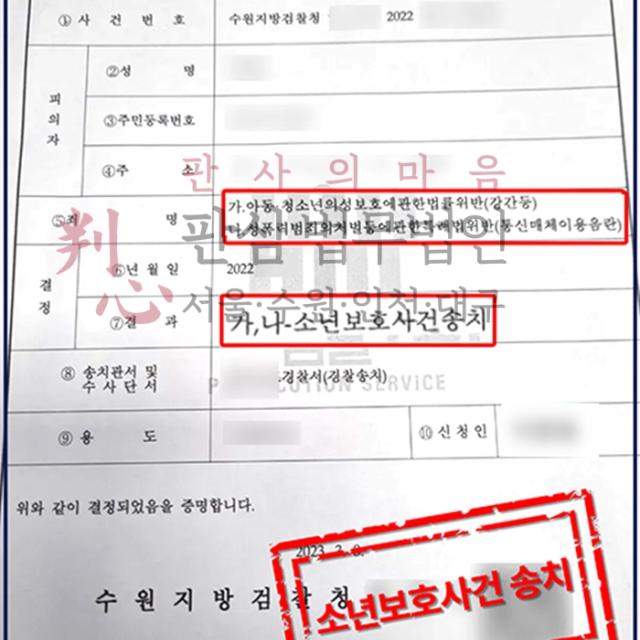 ① 사 건 번 호 수원지방검찰청 2022
②성 명
피의자
③주민등록번호
④주 소
판사의마음
⑤죄 명 가.아동·청소년의성보호에관한법률위반(강간등)
나.성폭력범죄의처벌등에관한특례법위반(통신매체이용음란)
判心 판심법무법인
결정
⑥년월일 2022
서울·수원·인천·대구
⑦결 과 가,나-소년보호사건송치
⑧ 송치관서 및 수사단서 경찰서(경찰송치)
SERVICE
⑨ 용 도 ⑩ 신청인
위와 같이 결정되었음을 증명합니다.
2023. 8.
수 원 지 방 검 찰 청
소년보호사건 송치